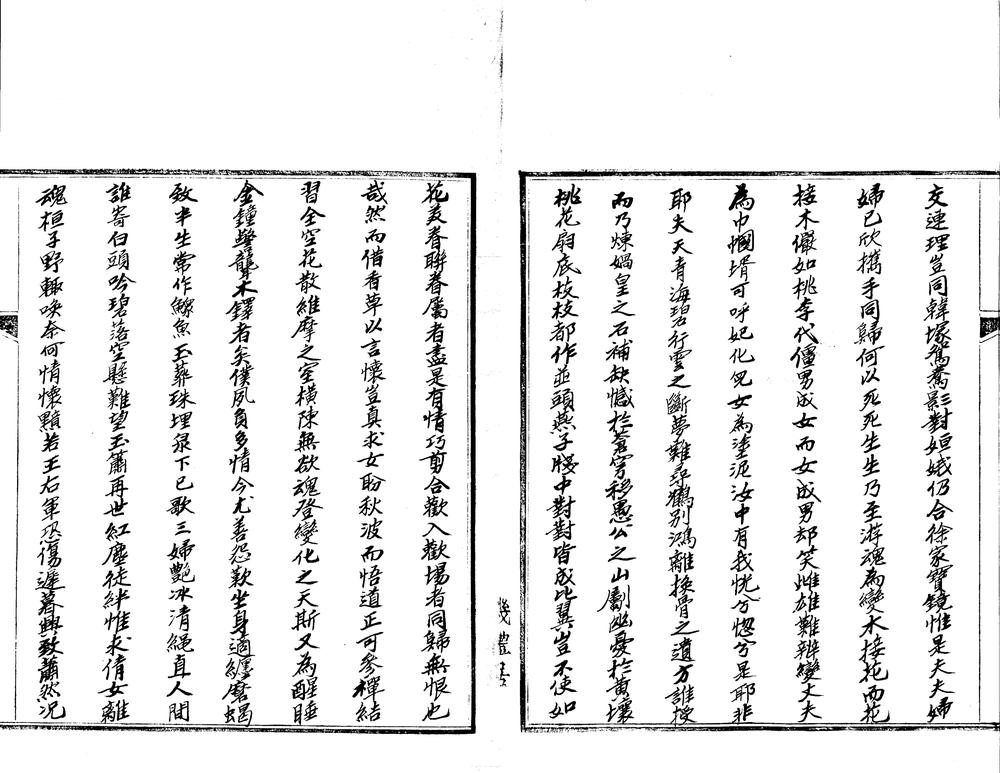 交連理豈同韓塚鴛鴦影對姮娥仍合徐家寶鏡惟是夫夫婦
婦已欣攜手同歸何以死死生生乃至游魂為變木接花而花
接木儼如桃李代僵男成女而女成男却笑雌雄難辨變丈夫
為巾幗壻可呼妃化兒女為塗泥汝中有我恍兮惚兮是耶非
耶夫天青海碧行雲之斷夢難尋鶴別鴻離換骨之遺方誰授
而乃煉媧皇之石補缺憾於蒼穹移愚公之山劚幽憂於黃壤
桃花扇底枝枝都作並頭燕子牋中對對皆成比翼豈不使如
花美眷聯眷屬者盡是有情巧剪合歡入歡場者同歸無恨也
哉然而借香草以言懷豈真求女盼秋波而悟道正可參禪結
習全空花散維摩之室橫陳無欲魂登變化之天斯又為醒睡
金鐘警聾木鐸者矣僕夙負多情今尤善怨歎坐身適纏磨蝎
致半生常作鰥魚玉葬珠埋泉下已歌三婦艷冰清繩直人間
誰寄白頭吟碧落空懸難望玉簫再世紅塵徒絆惟求倩女離
魂桓子野輒喚奈何情懷顥若王右軍恐傷遲暮興致蕭然況